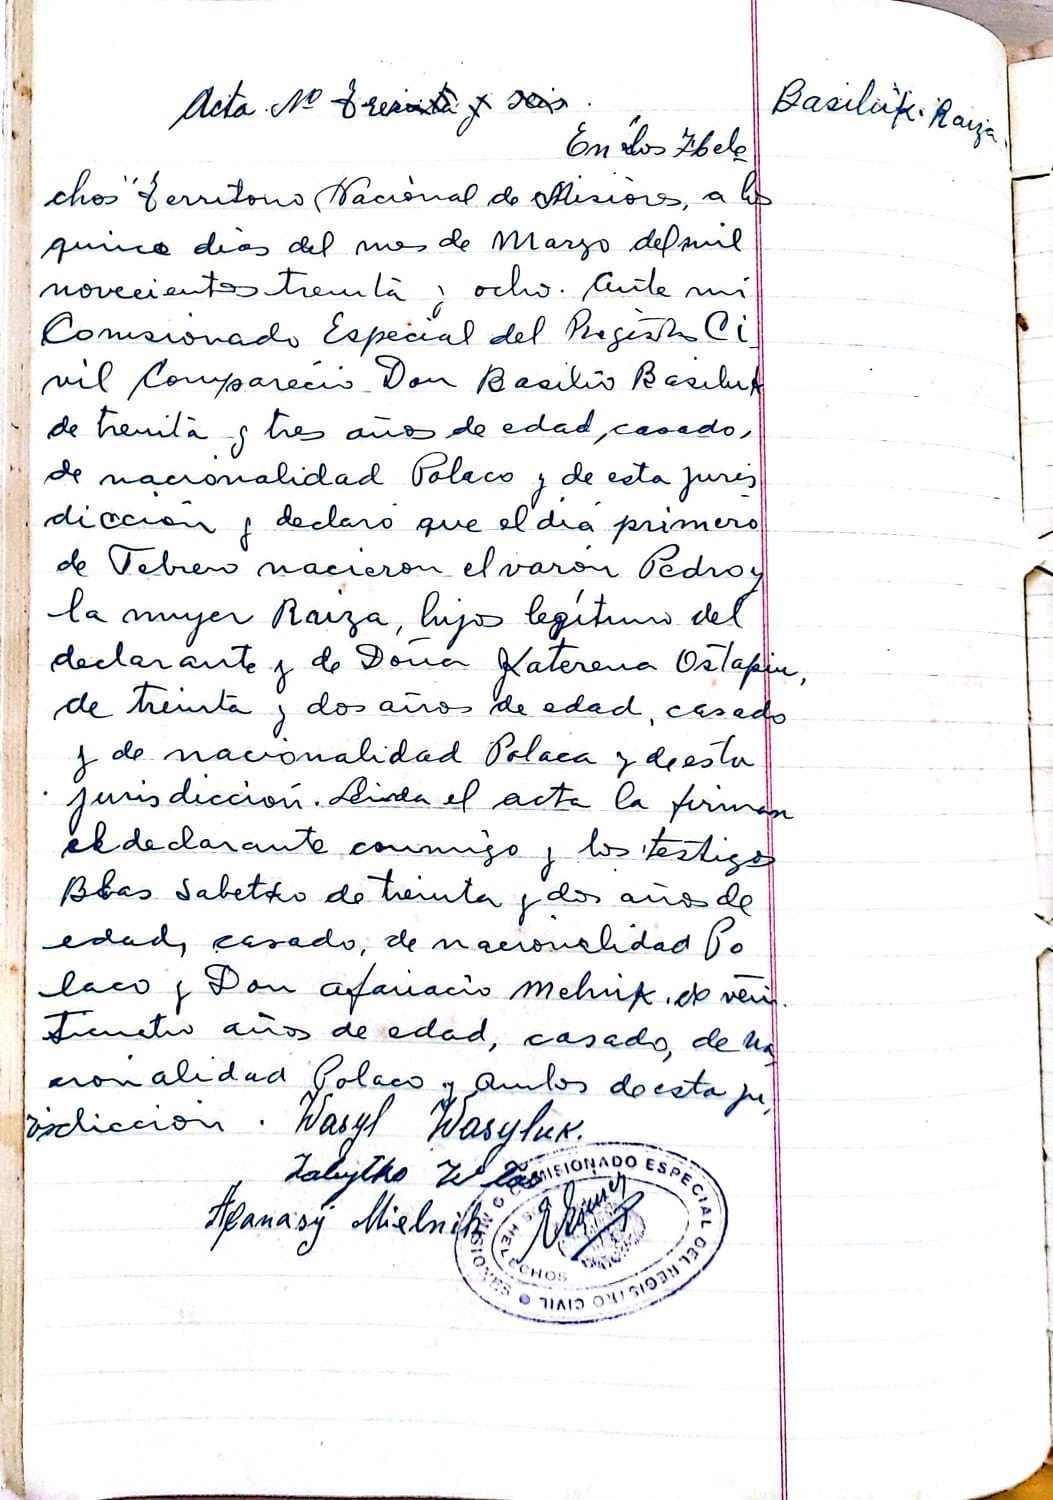 Acta Nº Treinta y seis.
Basiliuk Raiza
En "Los Hele
chos" Territorio Nacional de Misiones, a los
quince dias del mes de Marzo del mil
novecientos treinta y ocho. Ante mi
Comisionado Especial del Registro Ci
vil Compareció Don Basilio Basiluk
de treinta y tres años de edad, casado,
de nacionalidad Polaco y de esta juris
dicción y declaró que el dia primero
de Febrero nacieron el varón Pedro y
la mujer Raiza, hijos legítimo del
declarante y de Doña Katerena Ostapiu,
de treinta y dos años de edad, casado
y de nacionalidad Polaca y de esta
jurisdicción. Leida el acta la firman
el declarante conmigo y los testigos
Blas Sabetko de treinta y dos años de
edad, casado, de nacionalidad Po
laco y Don Afanacio Melnik de vein
ticuatro años de edad, casado, de na
cionalidad Polaco y ambos de esta ju
risdicción. Wasyl Wasyluk.
Zabytko
Afanasy Mielnik
COMISIONADO ESPECIAL DEL REGISTRO CIVIL
MISIONES
LOS HELECHOS